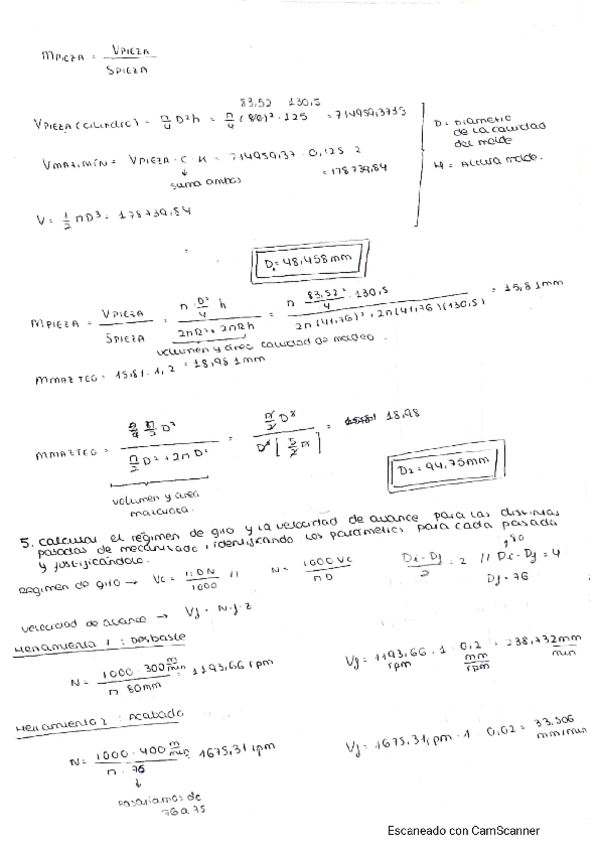 MPIEZA = VPIEZA / SPIEZA
83,52 130,5
VPIEZA (cilindro) = π/4 D²h = π/4 (80)² · 125 = 714959,3735
D = Diametro de la cavidad del molde
H = Altura molde.
VMAZ.MIN = VPIEZA · C · K = 714959,37 · 0,125 2 = 178739,84
↓
suma ambos
V = 1/2 π D³ = 178739,84
D₁ = 48,458 mm
MPIEZA = VPIEZA / SPIEZA = π D²/4 h / 2πR² + 2πRh = π 83,52²/4 · 130,5 / 2π(41,76)² + 2π(41,76)(130,5) = 15,81 mm
volumen y área cavidad de moldeo.
MMAZTEC = 15,81 · 1,2 = 18,981 mm
MMAZTEC = π/2 D³ / π/2 D² + 2πD² = π/2 D³ / D² [5/2 π] = 18,98
volumen y area
mazarota.
D₂ = 94,75 mm
5. calcular el régimen de giro y la velocidad de avance para las distintas
pasadas de mecanizado, identificando los parámetros para cada pasada
y justificándolo.
Régimen de giro → Vc = πDN / 1000 // N = 1000 Vc / πD
Di - Df / 2 = 2 // Di - Df = 4
80
Df = 76
velocidad de avance → Vf = N · f · z
Herramienta 1 : Desbaste
N = 1000 · 300 m/min / π 80mm = 1193,66 rpm
Vf = 1193,66 rpm · 1 · 0,2 mm/rpm = 238,732 mm/min
Herramienta 2 : Acabado
N = 1000 · 400 m/min / π · 76 = 1675,31 rpm
Vf = 1675,31 rpm · 1 · 0,02 = 33.506 mm/min
↓
Pasaríamos de
76 a 75
Escaneado con CamScanner